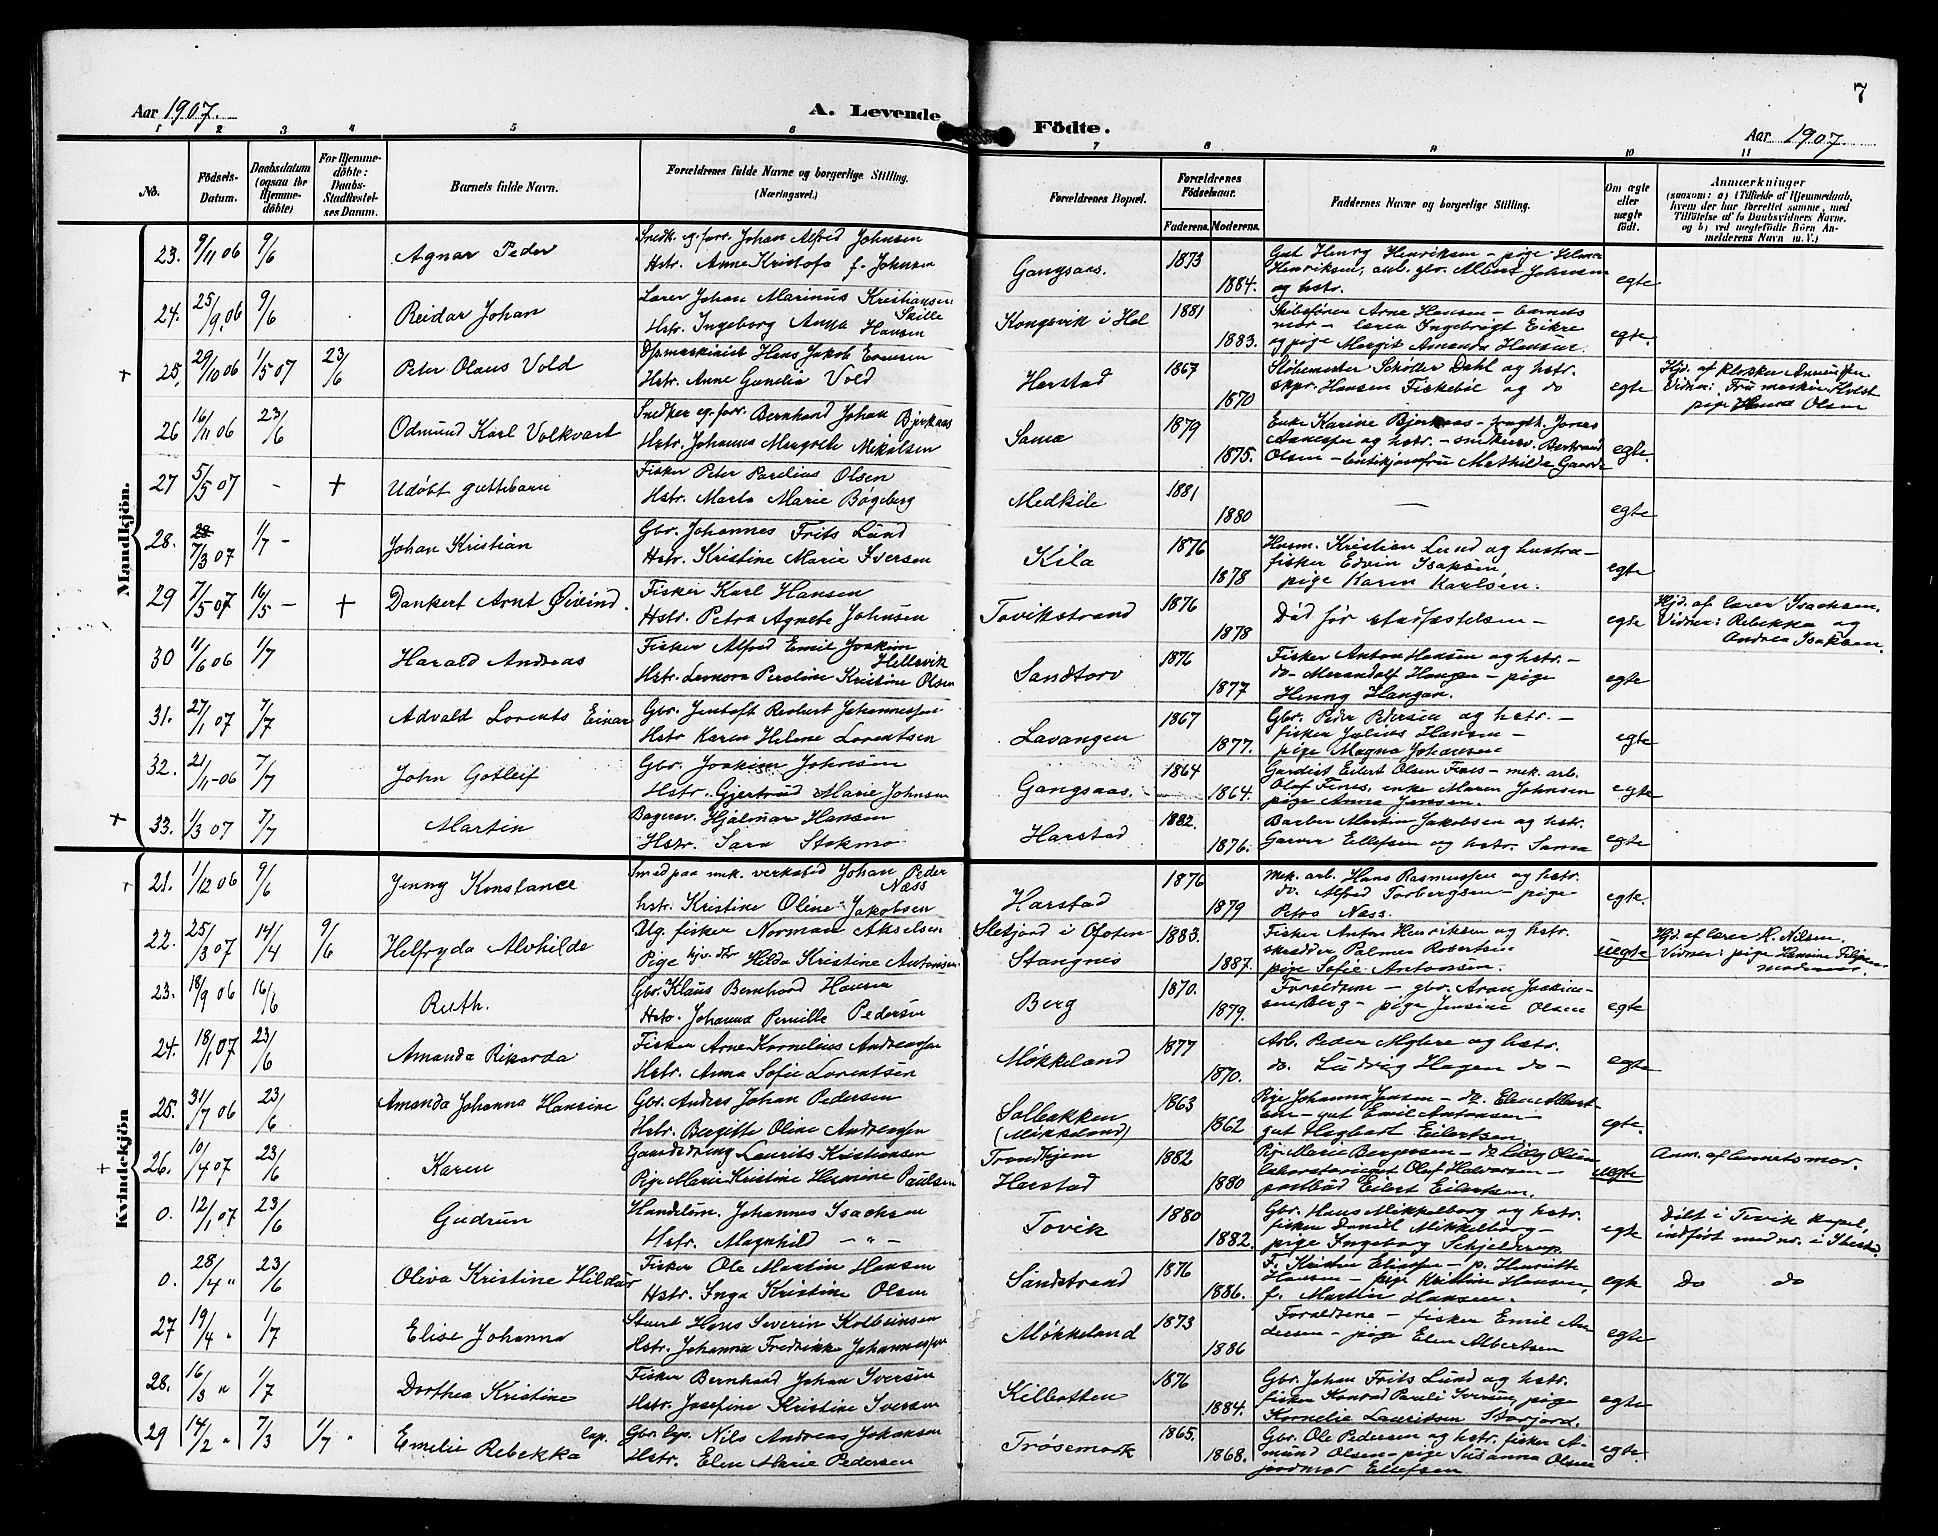 Aar 1907.
A. Levende
Födte.
7
Aar 1907.
1 2 3 4 5 6 7 8 9 10 11
No.
Födsels-
Datum.
Daabsdatum
(ogsaa for
Hjemme-
döbte)
For Hjemme-
döbte:
Daabs-
Stadfæstel-
ses Datum.
Barnets fulde Navn.
Forældrenes fulde Navne og borgerlige Stilling.
(Næringsvei.)
Forældrenes Bopæl.
Forældrenes
Födselsaar.
Faderens. Moderens.
Faddernes Navne og borgerlige Stilling.
Om ægte
eller
uægte
födt.
Anmærkninger
(saasom: a) i Tilfælde af Hjemmedaab,
hvem der har forrettet samme, med
Tilföielse af to Daabsvidners Navne.
og b) ved uægtefödte Börn An-
melderens Navn m. V.)
Mandkjön.
23. 9/11 06 9/6 Agnar Peder
Snedk. og forr. Johan Alfred Johnsen
Hstr. Anne Kristofa f. Johnsen
Gangsaas. 1873 1884.
Gut Henry Henriksen – pige Selma
Henriksen, arb. gbr. Albert Johnsen
og hstr.
egte
24. 25/9 06 9/6 Reidar Johan
Lærer Johan Marinus Kristiansen
Skille
Hstr. Ingeborg Anna Hansen
Kongsvik i Hol 1881 1883.
Skibsfører Arne Hansen – barnets
mor – lærer Ingebrigt Eikre
og pige Margit Amanda Hansen.
egte
+ 25. 29/10 06 1/5 07 23/6 Peter Olaus Vold
Dpmaskinist Hans Jakob Evensen
Hstr. Anne Gunelia Vold
Harstad 1867 1870
Støbemester Schøller Dahl og hstr.
skpr. Hansen Fiskebøl og do
egte
Hjd. af klokker
Vidner: Fru maskin. Kvist
pige Olsen
26 16/11 06 23/6 Odmund Karl Volkvart
Snedker og forr. Bernhard Johan Bjerkaas
Hstr. Johanna Margrete Mikalsen
Sama 1879 1875.
Enke Karine Bjerkaas – fragth. Jonas
og hstr. – snedkersv. Bertrand
Olsen – butikjomfru Mathilde Gaarde
egte.
27 5/5 07 – + Udøbt guttebarn
Fisker Peter Parelius Olsen
Hstr. Marta Marie Bøgeberg
Medkile 1881 1880 — egte
28. 7/3 07 1/7 – Johan Kristian
Gbr. Johannes Frits Lund
Hstr. Kristine Marie Iversen
Kila 1876 1878
Husm. Kristian Lund og hustru –
fisker Edvin Isaksen
pige Karen Karlsen.
egte
29 7/5 07 16/5 – + Dankert Arnt Øivind.
Fisker Karl Hansen
Hstr. Petra Agnete Johnsen
Tovikstrand 1876 1878
Død før stadfæstelsen –
egte
Hjd. af lærer Isachsen.
Vidner: Rebekka og
Andrea Isaksen.
30 11/6 06 1/7 Harald Andreas
Fisker Alfred Emil Joakim
Hellevik
Hstr. Leonora Peroline Kristine Olsen
Sandtorv 1876 1877
Fisker Anton Hansen og hstr. –
do – Merandolf Hangan – pige
Henny Hangan.
egte
31. 27/1 07 7/7 Advald Lorents Einar
Gbr. Jentoft Robert Johannessen
Hstr Karen Helene Lorentsen
Lavangen 1867 1877.
Gbr. Peder Pedersen og hstr. –
fisker Julius Hansen –
pige Magna Johansen
egte
32. 21/11–06 7/7 John Gotleif
Gbr. Joakim Johnsen
Hstr. Gjertrud Marie Johnsen
Gangsaas. 1864 1864.
Gardist Eilert Olsen Fines – mek. arb.
Olaf Fines, enke Maren Johnsen
pige Anna Jensen.
egte
+ 33. 1/3 07 7/7 Martin
Bagersv. Hjalmar Hansen
Hstr. Sara Stokmo
Harstad 1882. 1876.
Barber Martin Jakobsen og hstr.
Garver Ellefsen og hstr. Sama
egte
Kvindekjön
+ 21. 1/12 06 9/6 Jenny Konstance
Smed paa mek. verksted Johan Peder
Næss
hstr. Kristine Oline Jakobsen
Harstad 1876 1879
Mek. arb. Hans Rasmussen og hstr.
do. Alfred Torbergsen – pige
Petra Næss.
egte.
22. 25/3 07 14/4 9/6 Helfryda Alvhilde
Ug. fisker Norman Akselsen
Pige Hilda Kristine Antonsen
Sletjord i Ofoten
Stangnes 1883. 1887.
Fisker Anton Henriksen og hstr.
skrædder Palmer Robertsen
pige Sofie Antonsen.
uegte
Hjd. af lærer K. Nilsen.
Vidner: pige
23. 18/9 06 16/6 Ruth.
Gbr. Klaus Bernhard Hansen
Hstr. Johanna Pernille Pedersen
Berg 1870. 1879.
Forældrene – gbr. Aron Joakim-
sen Berg – pige Jensine Olsen
egte
24. 18/1 07 23/6 Amanda Rikarda
Fisker Arne Kornelius Andreassen
Hstr. Anna Sofie Lorentsen
Møkkeland 1877 1870.
Arb. Peder Myhre og hstr.
do. Ludvig Hagen do –
egte
25. 31/7 06 23/6 Amanda Johanna Hansine
Gbr. Anders Johan Pedersen
Hstr. Bergitte Oline Andreassen
Solbakken
(Møkkeland) 1863 1862
Pige Johanna Jensen – do. Elen Albert-
sen – gut Emil Antonsen –
gut Hegbart Eilertsen.
egte.
+ 26. 10/4 07 23/6 Karen
Gaardsdreng Laurits Kristiansen
Pige Marie Kristine Hermine Paulsen
Trondhjem
Harstad 1882 1880
Pige Marie Bergersen – do Lilly Olsen
Olaf Halvorsen –
postbud Eilert Eilertsen.
uegte
Anm. af barnets mor.
0. 12/1 07 23/6 Gudrun
Handelsm. Johannes Isachsen
Hstr. Magnhild – " –
Tovik 1880 1882.
Gbr. Hans Mikkelborg og hstr.
fisker Daniel Mikkelborg –
pige Ingeborg Schjelderup
egte
Døbt i Tovik kapel,
indført med nr. i Ibestad.
0. 28/4 " 23/6 Oliva Kristine Hildur
Fisker Ole Martin Hansen
Hstr. Inga Kristine Olsen
Sandstrand 1876 1886.
F. Kristen Eliassen – p. Henriette
Hansen – pige Kristine Hansen,
f. Martin Hansen.
egte Do do
27 19/4 " 1/7 Elise Johanna
Stuert Hans Severin Kolbeinsen
Hstr. Johanna Fredrikke Johannessen
Møkkeland 1873 1886
Forældrene – fisker Emil An-
dersen – pige Elen Albertsen
egte
28. 16/3 " 1/7 Dorthea Kristine
Fisker Bernhard Johan Iversen
Hstr. Josefine Kristine Iversen
Kilbotten 1876 1884.
Gbr. Johan Frits Lund og hstr.
fisker Konrad Pareli Iversen, pige
Kornelie Lauritsen Storjord.
egte
29 14/2 " 7/3 1/7 " Emelie Rebekka lap.
Gbr. lap. Nils Andreas Johansen
Hstr. Elen Marie Pedersen
Trøsemark 1865. 1868.
Gbr. Ole Pedersen og hstr. fisker A-
mund Olsen – pige Susanna Olsen
jordmor Ellefsen
egte.